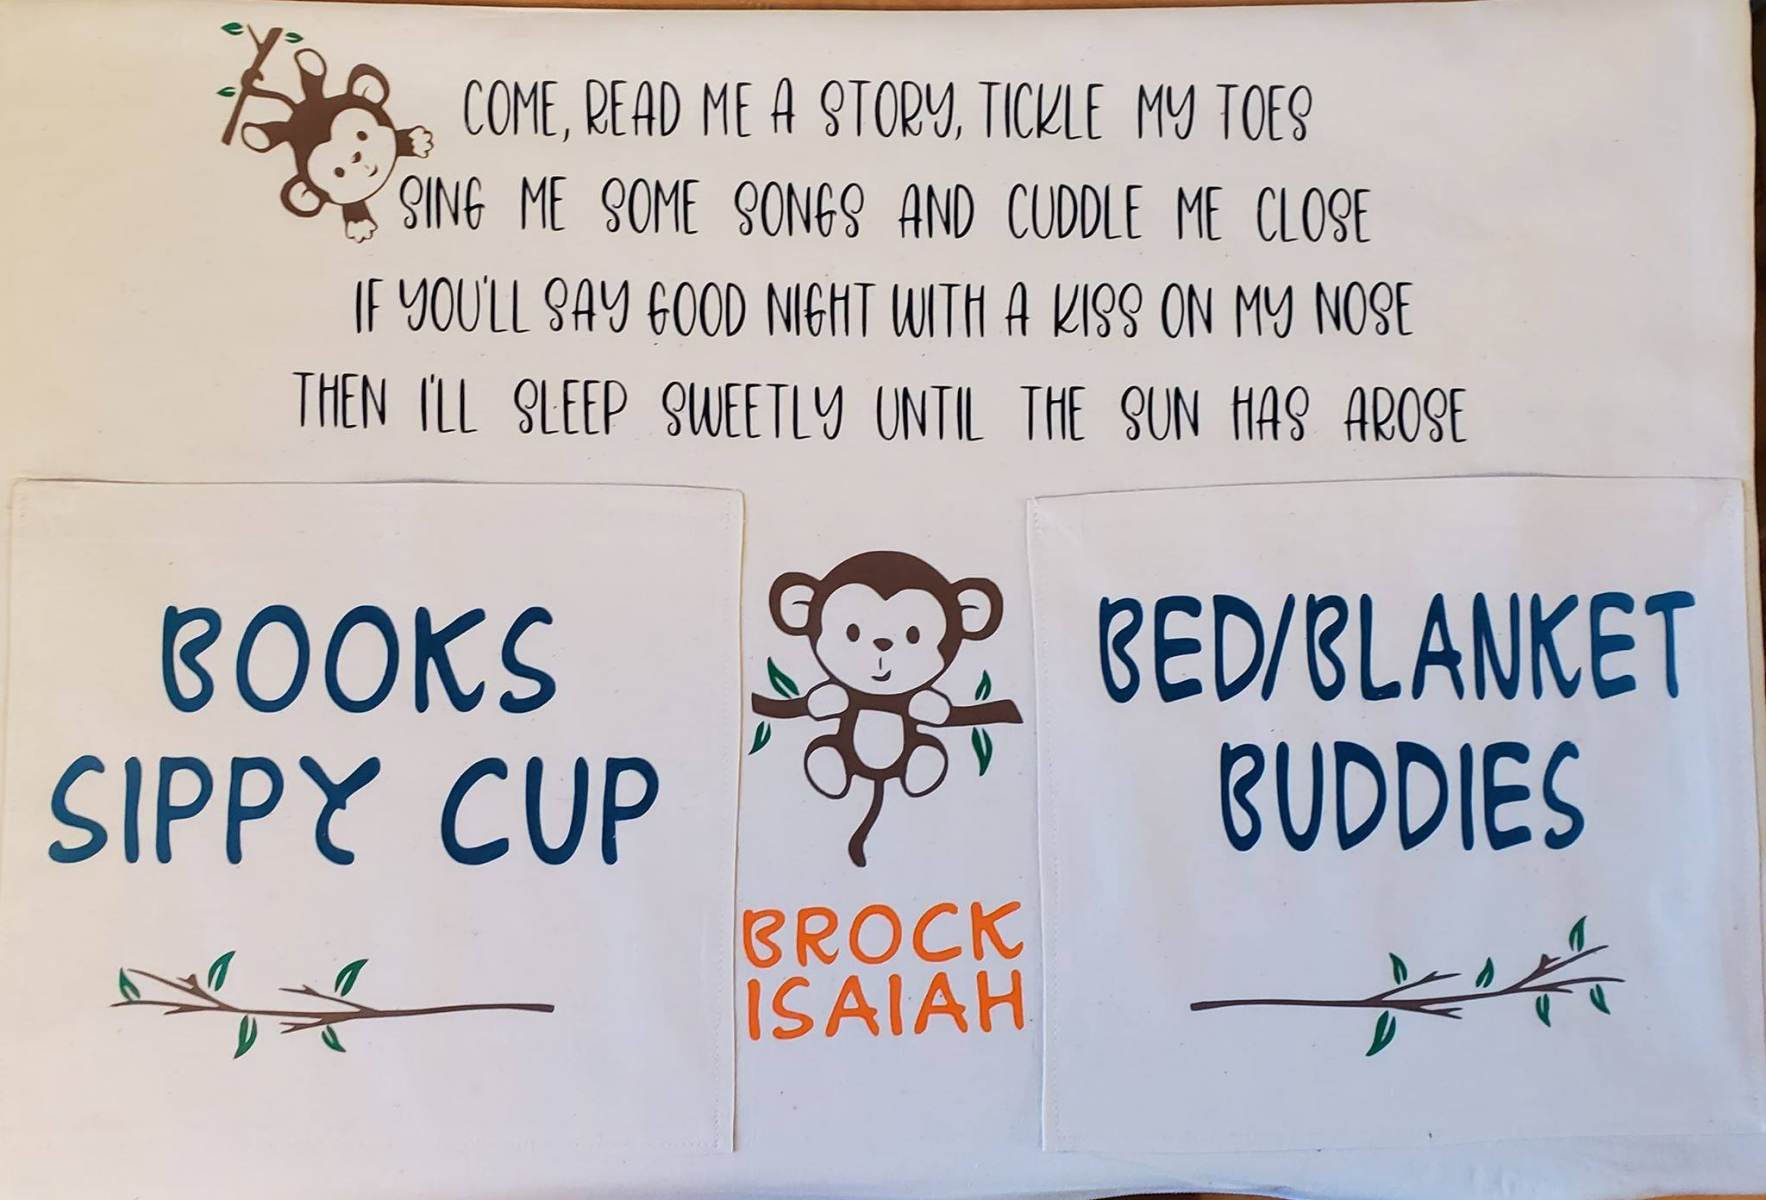 COME, READ ME A STORY, TICKLE MY TOES
SING ME SOME SONGS AND CUDDLE ME CLOSE
IF YOU'LL SAY GOOD NIGHT WITH A KISS ON MY NOSE
THEN I'LL SLEEP SWEETLY UNTIL THE SUN HAS AROSE
BOOKS
SIPPY CUP
BROCK
ISAIAH
BED/BLANKET
BUDDIES